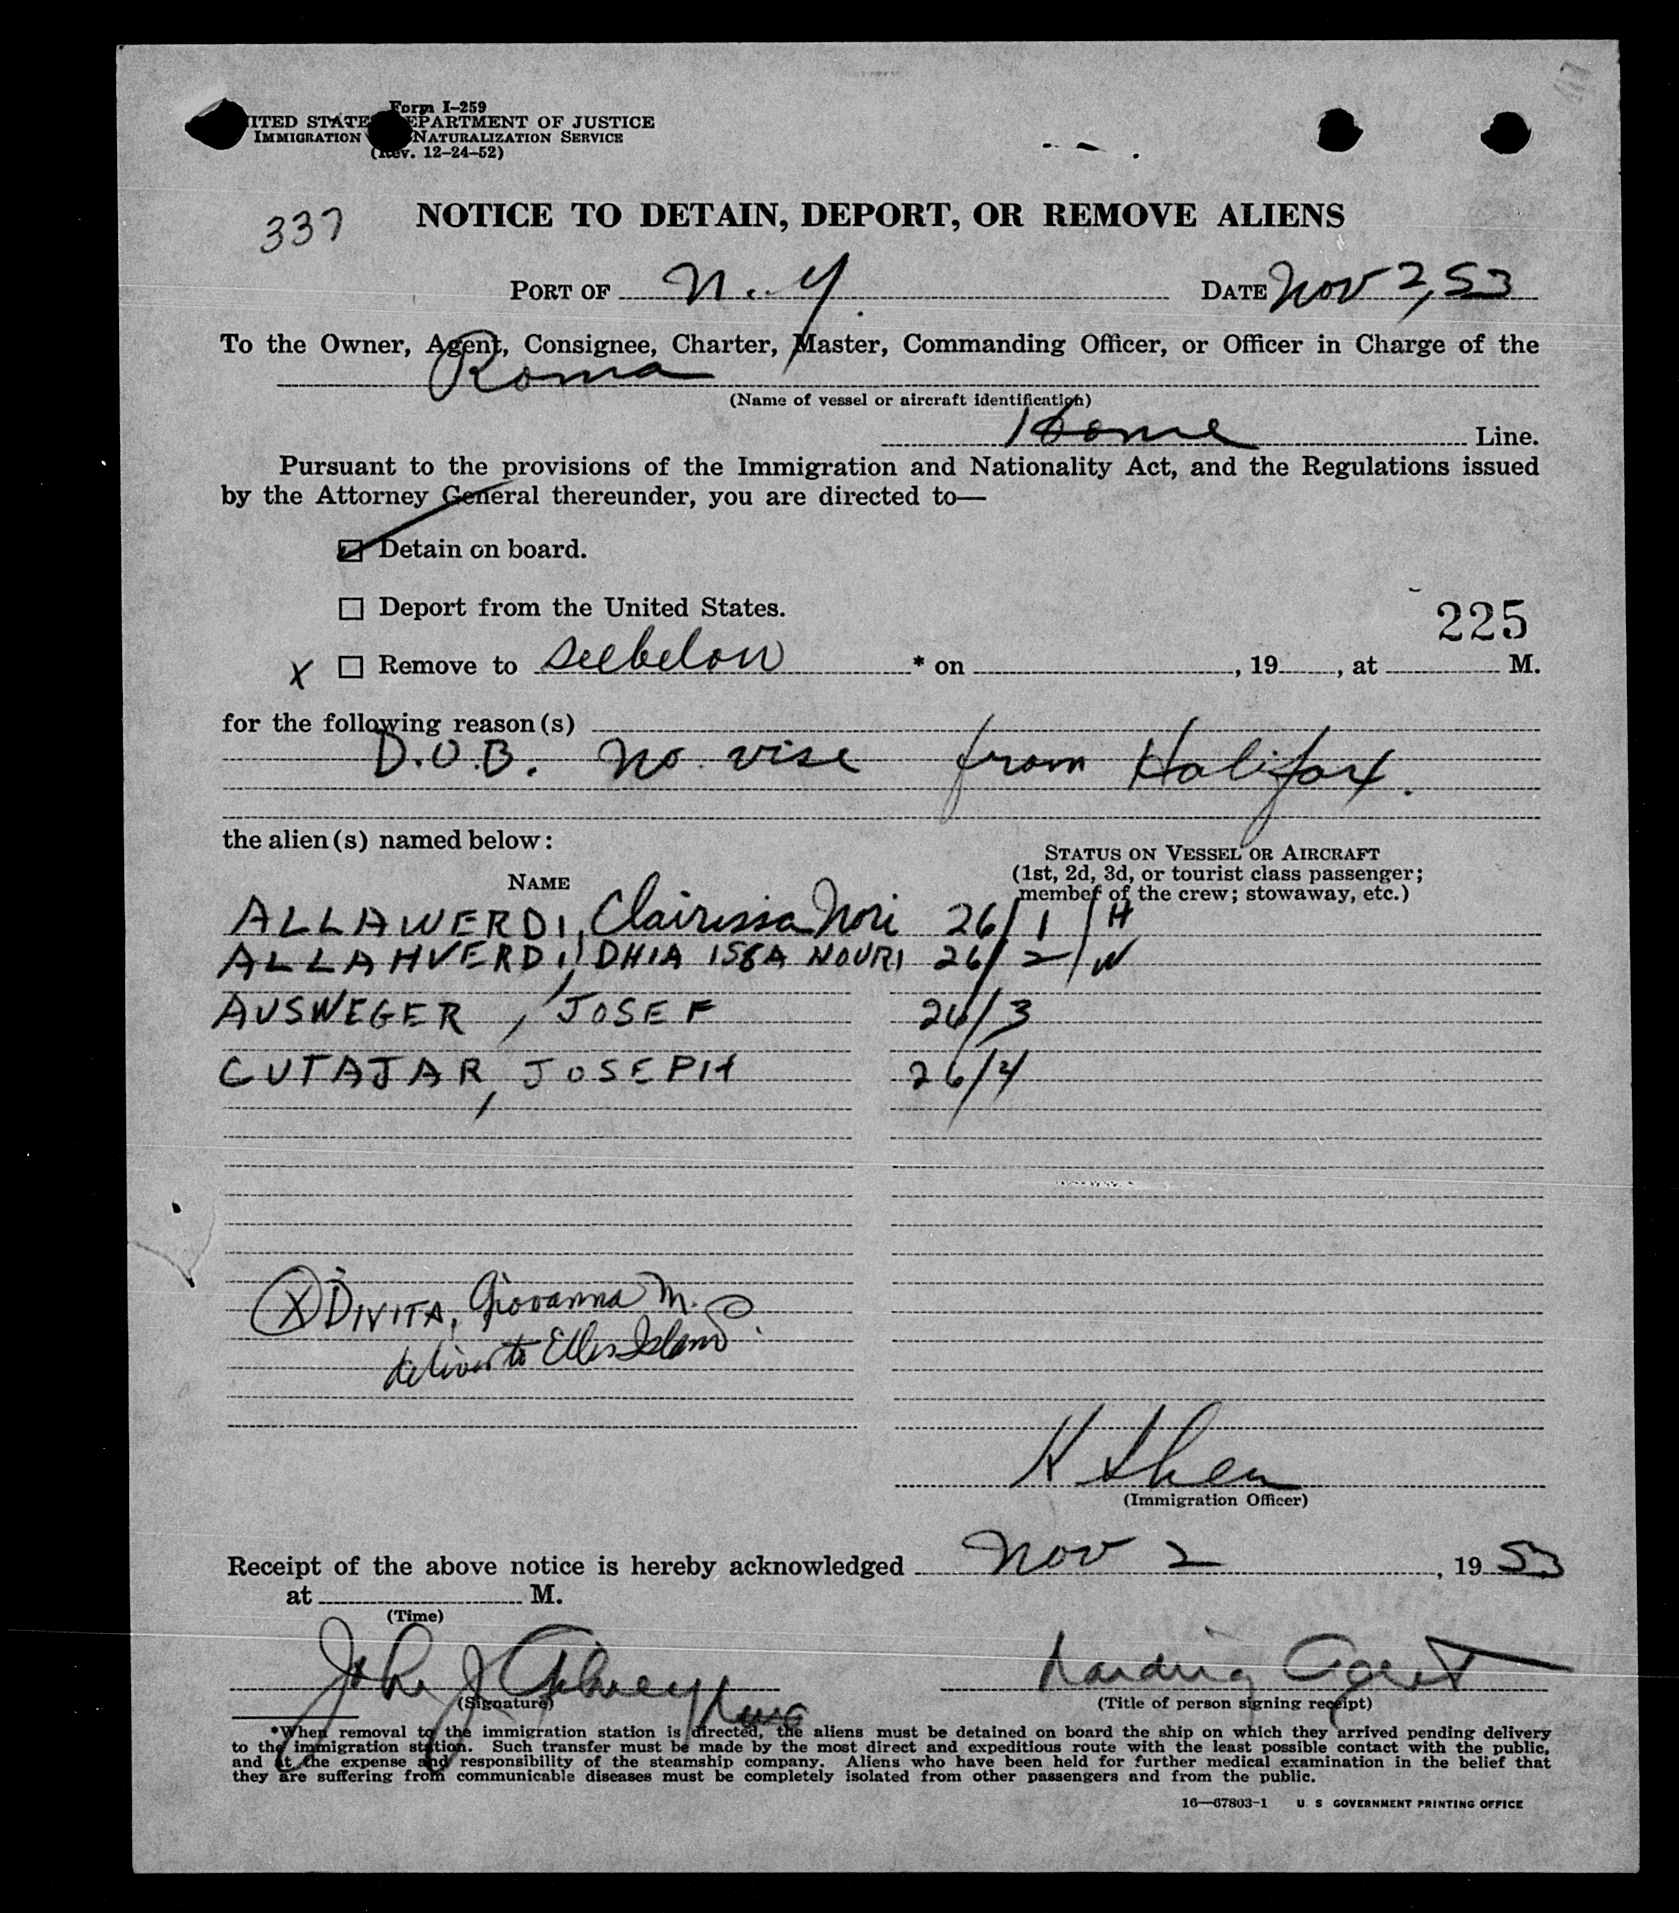 Form I-259
UNITED STATES DEPARTMENT OF JUSTICE
IMMIGRATION NATURALIZATION SERVICE
(Rev. 12-24-52)
337
NOTICE TO DETAIN, DEPORT, OR REMOVE ALIENS
PORT OF N.Y. DATE Nov 2, 53
To the Owner, Agent, Consignee, Charter, Master, Commanding Officer, or Officer in Charge of the
Roma
(Name of vessel or aircraft identification)
Home Line.
Pursuant to the provisions of the Immigration and Nationality Act, and the Regulations issued
by the Attorney General thereunder, you are directed to—
Detain on board.
Deport from the United States.
225
X Remove to see below * on , 19 , at M.
for the following reason(s)
D.O.B. No vise from Halifax.
the alien(s) named below:
STATUS ON VESSEL OR AIRCRAFT
(1st, 2d, 3d, or tourist class passenger;
NAME member of the crew; stowaway, etc.)
ALLAWERDI, Clairissa Nori 26/1/H
ALLAHVERDI, DHIA ISSA NOURI 26/2/W
AUSWEGER, JOSEF 26/3
CUTAJAR, JOSEPH 26/4
X DIVITA, Giovanna M.
deliver to Ellis Island.
K Shea
(Immigration Officer)
Receipt of the above notice is hereby acknowledged Nov 2, 19 53
at M.
(Time)
John J Landing Agent
(Signature) (Title of person signing receipt)
*When removal to the immigration station is directed, the aliens must be detained on board the ship on which they arrived pending delivery
to the immigration station. Such transfer must be made by the most direct and expeditious route with the least possible contact with the public,
and at the expense and responsibility of the steamship company. Aliens who have been held for further medical examination in the belief that
they are suffering from communicable diseases must be completely isolated from other passengers and from the public.
16—67803-1 U. S GOVERNMENT PRINTING OFFICE